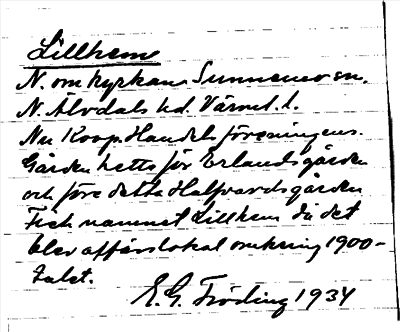 Lillhem
N. om kyrkan Sunnemo sn.
N. Älvdals hd. Värml. l.
Nu Koop. Handelsföreningens.
Gården hette för Erlandsgården
och före detta Halfvardsgården.
Fick namnet Lillhem då det
blev affärslokal omkring 1900-
talet.
E. G. Fröding 1934